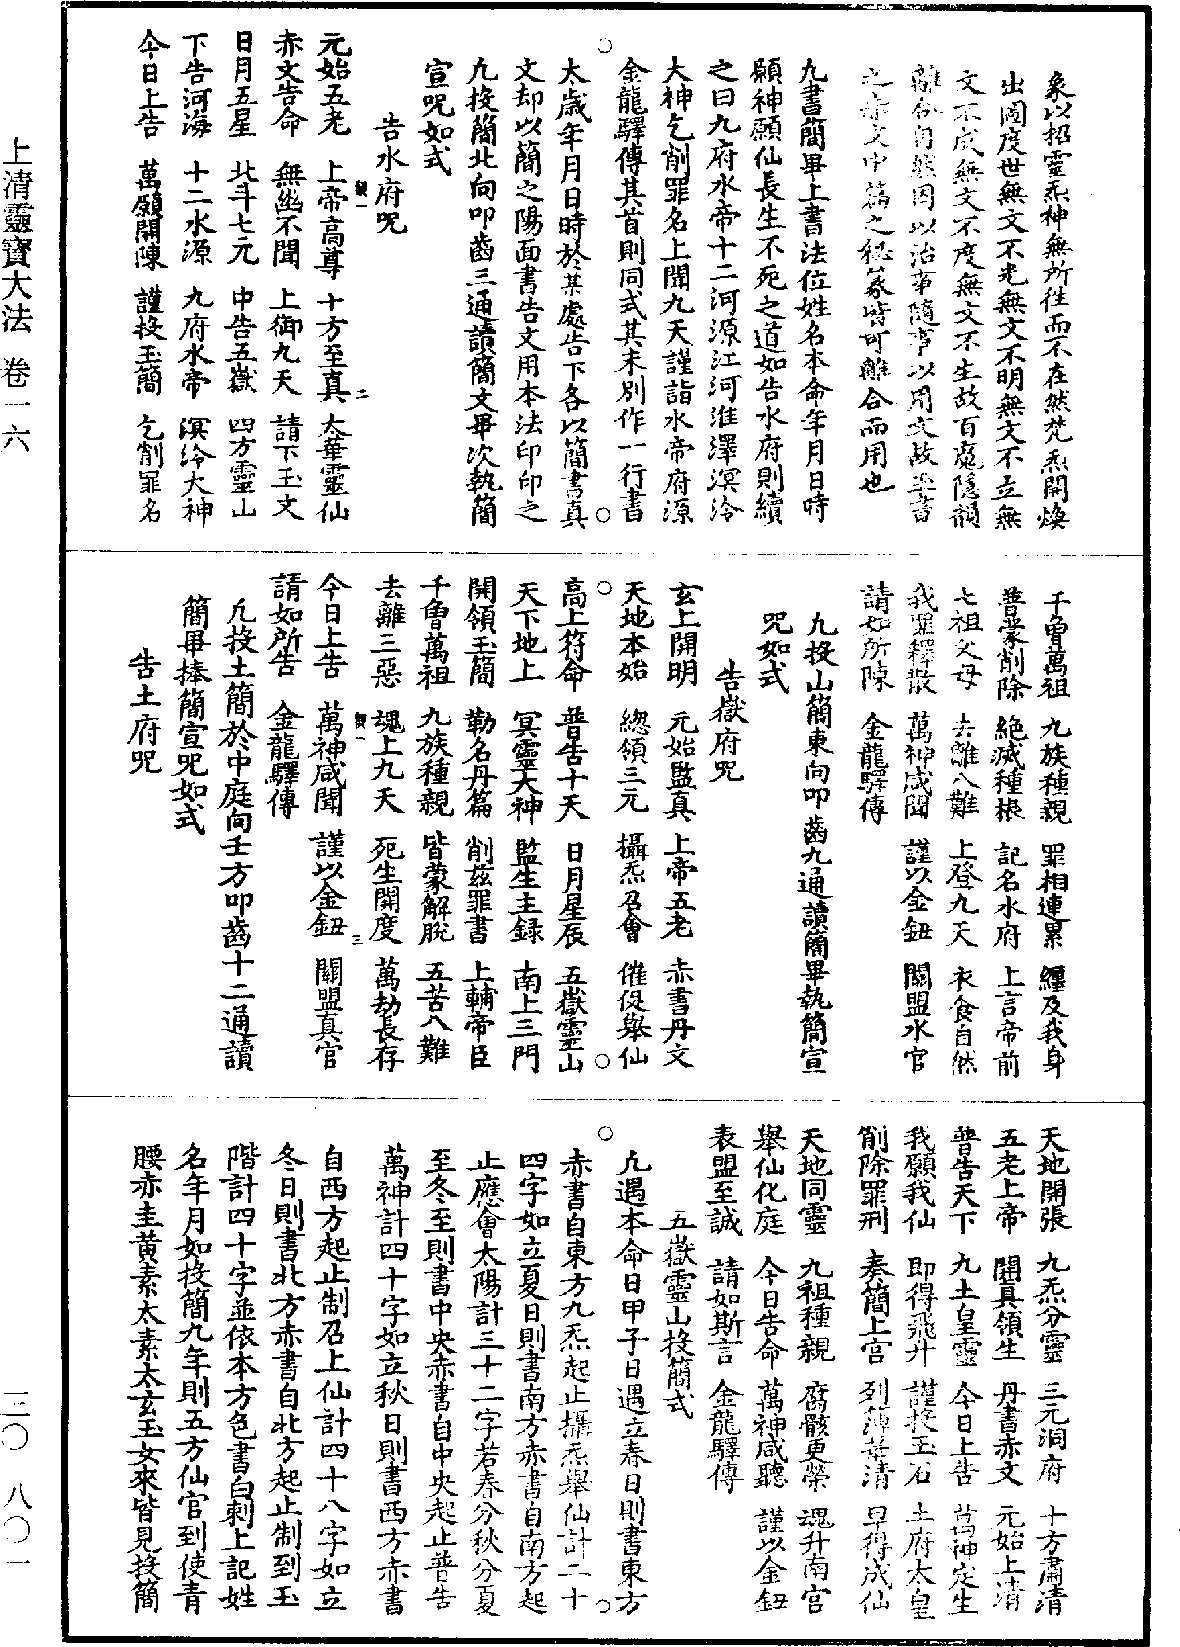 上清靈寶大法 卷一六
三〇 八〇一
象以招靈炁神無所往而不在然梵炁開煥
出圖度世無文不光無文不明無文不立無
文不成無文不度無文不生故百魔隱韻
離合自然因以治事隨事以用文故玉書
之赤文中篇之秘篆皆可離合而用也
九書簡畢上書法位姓名本命年月日時
願神願仙長生不死之道如告水府則續
之曰九府水帝十二河源江河淮澤溟泠
大神乞削罪名上聞九天謹詣水帝府源
金龍驛傳其首則同式其末別作一行書
太歲年月日時於某處告下各以簡書真
文却以簡之陽面書告文用本法印印之
九投簡北向叩齒三通讀簡文畢次執簡
宣咒如式
告水府咒
元始五老 上帝高尊 十方至真 太華靈仙
赤文告命 無幽不聞 上御九天 請下玉文
日月五星 北斗七元 中告五嶽 四方靈山
下告河海 十二水源 九府水帝 溟泠大神
今日上告 萬願開陳 謹投玉簡 乞削罪名
千曾萬祖 九族種親 罪相連累 纏及我身
普蒙削除 絶滅種根 記名水府 上言帝前
七祖父母 去離八難 上登九天 衣食自然
我罪釋散 萬神咸聞 謹以金鈕 關盟水官
請如所陳 金龍驛傳
九投山簡東向叩齒九通讀簡畢執簡宣
咒如式
告嶽府咒
玄上開明 元始監真 上帝五老 赤書丹文
天地本始 總領三元 攝炁召會 催促舉仙
高上符命 普告十天 日月星辰 五嶽靈山
天下地上 冥靈大神 監生主録 南上三門
開領玉簡 勒名丹篇 削兹罪書 上輔帝臣
千曾萬祖 九族種親 皆蒙解脫 五苦八難
去離三惡 魂上九天 死生開度 萬劫長存
今日上告 萬神咸聞 謹以金鈕 關盟真官
請如所告 金龍驛傳
凡投土簡於中庭向壬方叩齒十二通讀
簡畢捧簡宣咒如式
告土府咒
天地開張 九炁分靈 三元洞府 十方肅清
五老上帝 開真領生 丹書赤文 元始上清
普告天下 九土皇靈 今日上告 萬神定生
我願我仙 即得飛升 謹投玉石 土府太皇
削除罪刑 奏簡上宮 列簿華清 早得成仙
天地同靈 九祖種親 腐骸更榮 魂升南宮
舉仙化庭 今日告命 萬神咸聽 謹以金鈕
表盟至誠 請如斯言 金龍驛傳
五嶽靈山投簡式
凡遇本命日甲子日遇立春日則書東方
赤書自東方九炁起止攝炁舉仙計二十
四字如立夏日則書南方赤書自南方起
止應會太陽計三十二字若春分秋分夏
至冬至則書中央赤書自中央起止普告
萬神計四十字如立秋日則書西方赤書
自西方起止制召上仙計四十八字如立
冬日則書北方赤書自北方起止制到玉
階計四十字並依本方色書白刺上記姓
名年月如投簡九年則五方仙官到使青
腰赤圭黄素太素太玄玉女來皆見投簡